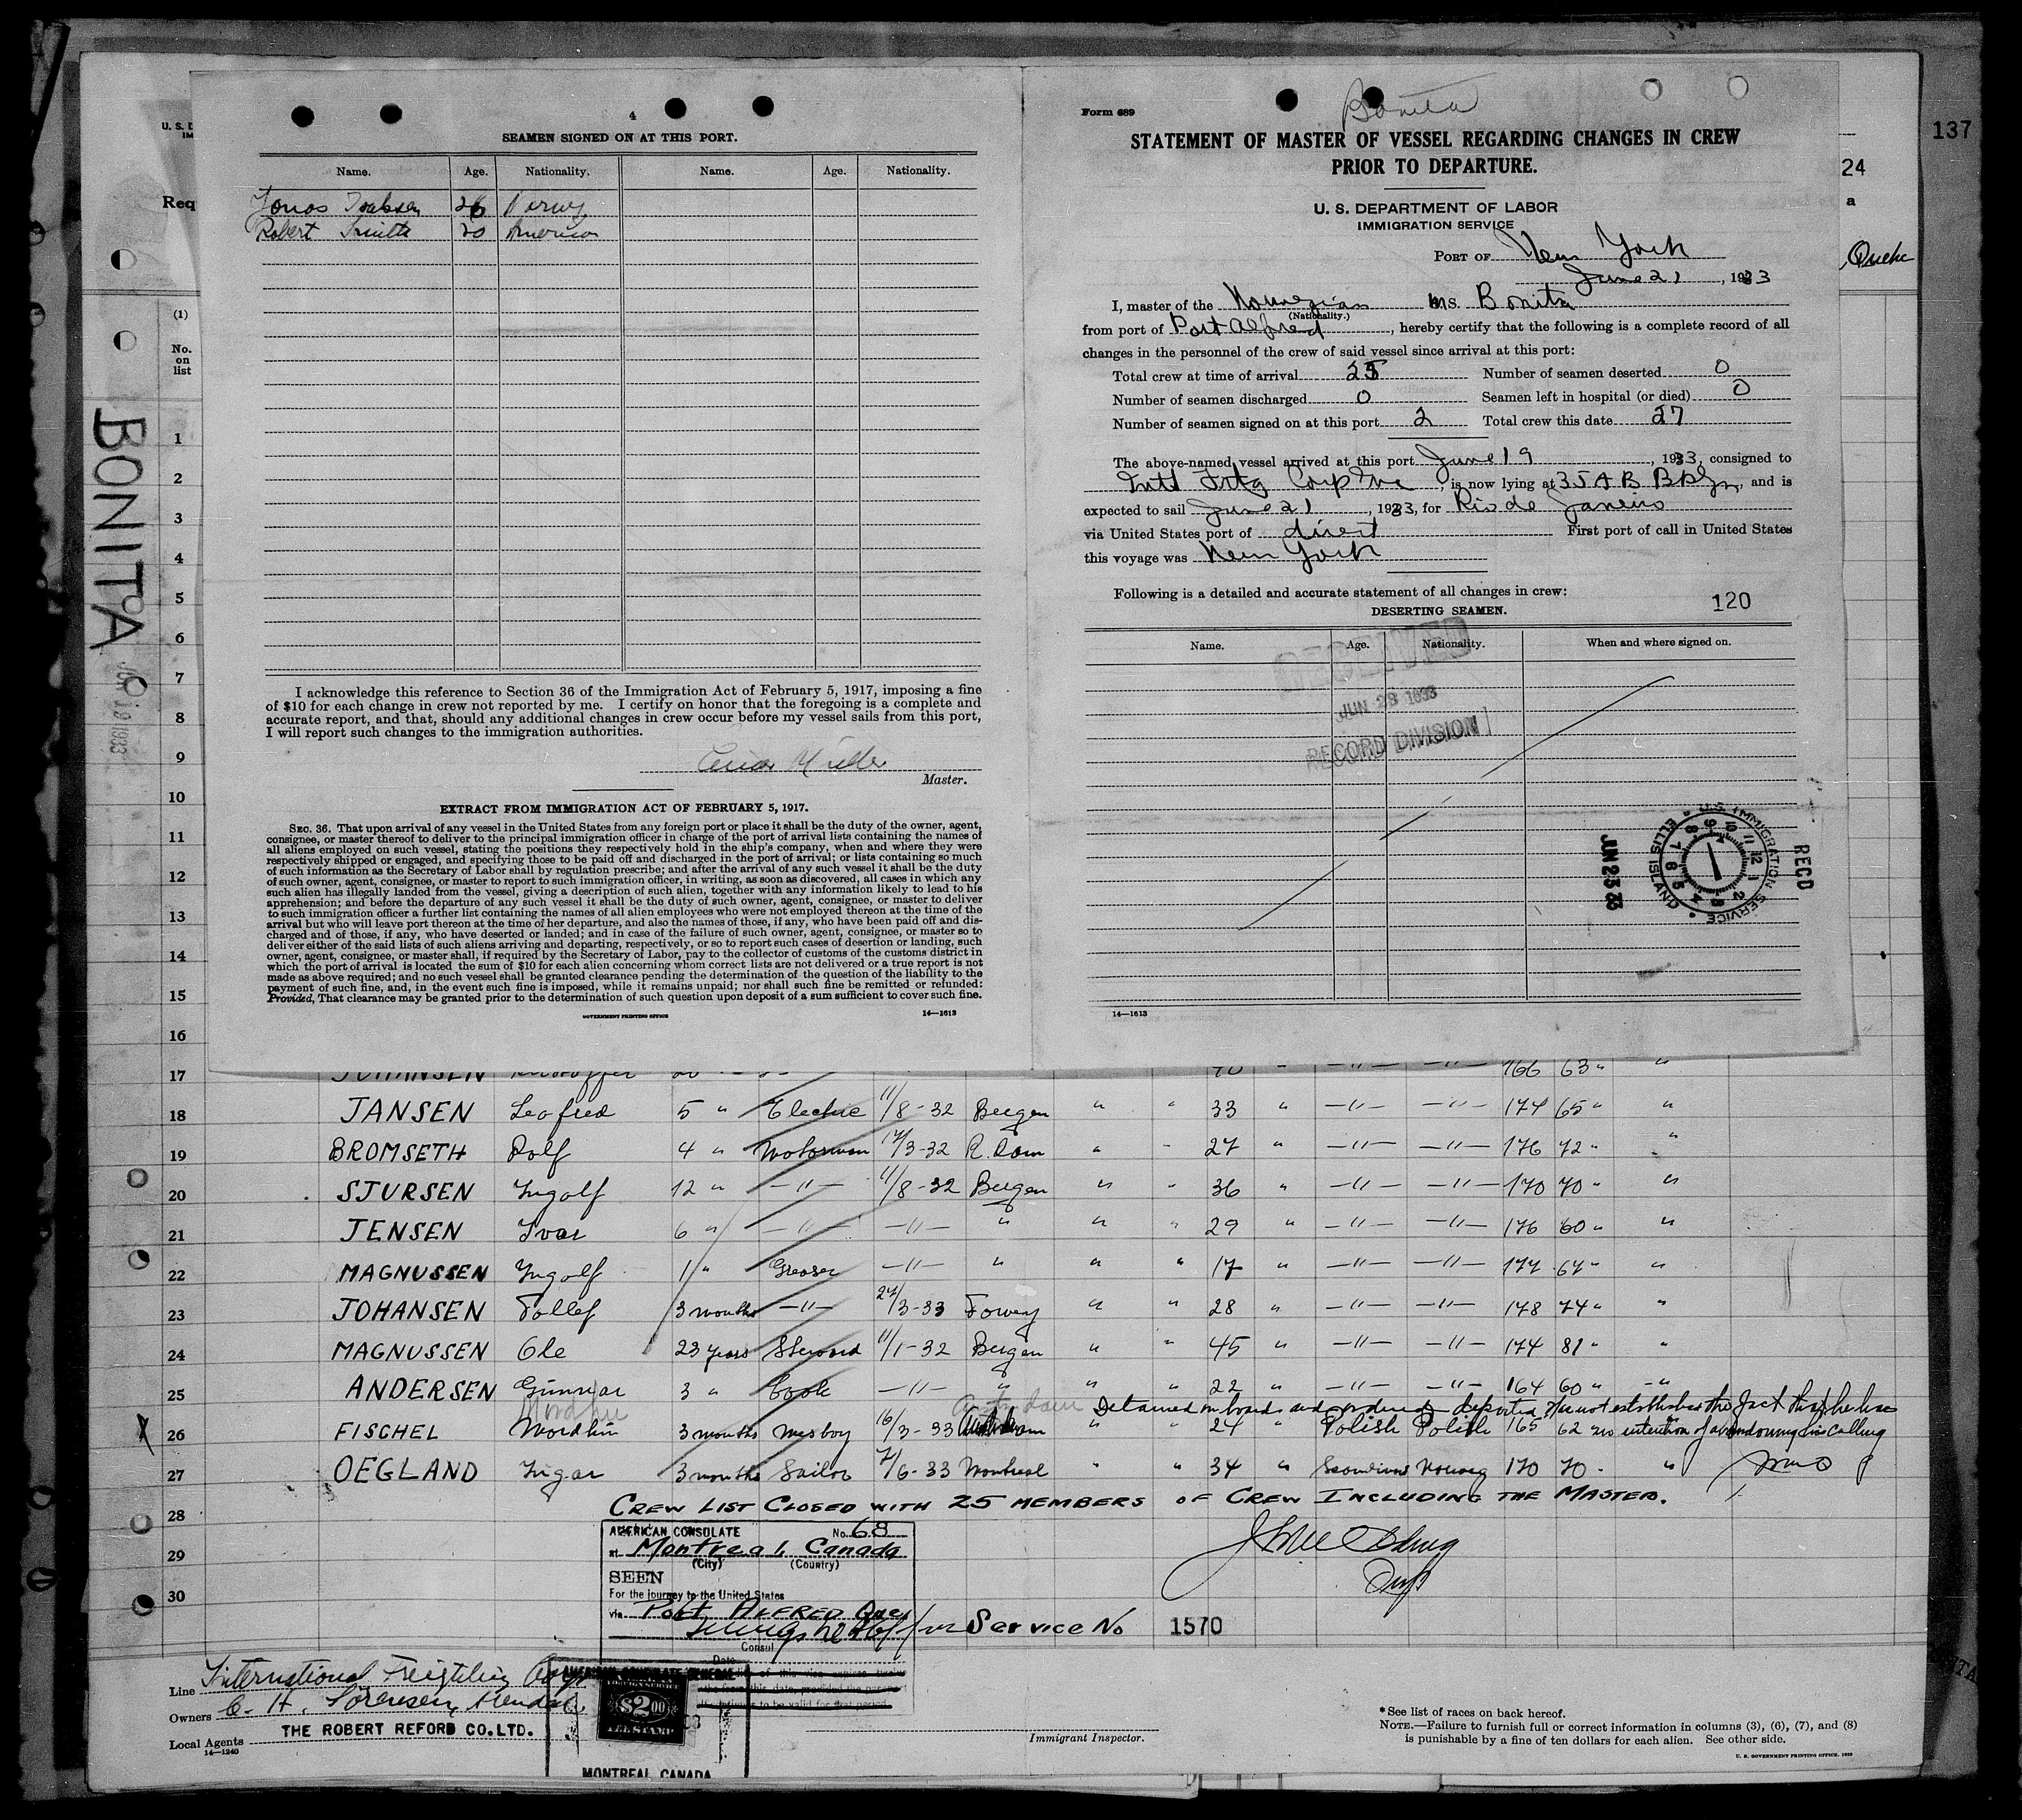 4
SEAMEN SIGNED ON AT THIS PORT.
Name. Age. Nationality. Name. Age. Nationality.
26
Robert 20
I acknowledge this reference to Section 36 of the Immigration Act of February 5, 1917, imposing a fine
of $10 for each change in crew not reported by me. I certify on honor that the foregoing is a complete and
accurate report, and that, should any additional changes in crew occur before my vessel sails from this port,
I will report such changes to the immigration authorities.
Master.
EXTRACT FROM IMMIGRATION ACT OF FEBRUARY 5, 1917.
SEC. 36. That upon arrival of any vessel in the United States from any foreign port or place it shall be the duty of the owner, agent,
consignee, or master thereof to deliver to the principal immigration officer in charge of the port of arrival lists containing the names of
all aliens employed on such vessel, stating the positions they respectively hold in the ship's company, when and where they were
respectively shipped or engaged, and specifying those to be paid off and discharged in the port of arrival; or lists containing so much
of such information as the Secretary of Labor shall by regulation prescribe; and after the arrival of any such vessel it shall be the duty
of such owner, agent, consignee, or master to report to such immigration officer, in writing, as soon as discovered, all cases in which any
such alien has illegally landed from the vessel, giving a description of such alien, together with any information likely to lead to his
apprehension; and before the departure of any such vessel it shall be the duty of such owner, agent, consignee, or master to deliver
to such immigration officer a further list containing the names of all alien employees who were not employed thereon at the time of the
arrival but who will leave port thereon at the time of her departure, and also the names of those, if any, who have been paid off and dis-
charged and of those, if any, who have deserted or landed; and in case of the failure of such owner, agent, consignee, or master so to
deliver either of the said lists of such aliens arriving and departing, respectively, or so to report such cases of desertion or landing, such
owner, agent, consignee, or master shall, if required by the Secretary of Labor, pay to the collector of customs of the customs district in
which the port of arrival is located the sum of $10 for each alien concerning whom correct lists are not delivered or a true report is not
made as above required; and no such vessel shall be granted clearance pending the determination of the question of the liability to the
payment of such fine, and, in the event such fine is imposed, while it remains unpaid; nor shall such fine be remitted or refunded:
Provided, That clearance may be granted prior to the determination of such question upon deposit of a sum sufficient to cover such fine.
GOVERNMENT PRINTING OFFICE 14—1613
Bonita
Form 689
STATEMENT OF MASTER OF VESSEL REGARDING CHANGES IN CREW
PRIOR TO DEPARTURE.
U. S. DEPARTMENT OF LABOR
IMMIGRATION SERVICE
PORT OF New York
June 21, 1933
I, master of the Norwegian MS. Bonita
(Nationality.)
from port of Port Alfred, hereby certify that the following is a complete record of all
changes in the personnel of the crew of said vessel since arrival at this port:
Total crew at time of arrival 25 Number of seamen deserted 0
Number of seamen discharged 0 Seamen left in hospital (or died) 0
Number of seamen signed on at this port 2 Total crew this date 27
The above-named vessel arrived at this port June 19, 1933, consigned to
Intl Frtg Corp Inc, is now lying at 35 A B Bklyn, and is
expected to sail June 21, 1933, for Rio de Janeiro
via United States port of direct First port of call in United States
this voyage was New York
Following is a detailed and accurate statement of all changes in crew:
120
DESERTING SEAMEN.
Name. Age. Nationality. When and where signed on.
RECEIVED
JUN 23 1933
RECORD DIVISION
U.S. IMMIGRATION SERVICE ELLIS ISLAND
JUN 23 33
RECD
14—1613
137
24
a
U. S. D
IM
Req
(1)
No.
on
list
BONITA
1
2
3
4
5
6
7
8
9
10
11
12
13
14
15
16
17 JOHANSEN 166 63 "
18 JANSEN Leofred 5 " Electric 11/8-32 Bergen " " 33 " —"— —"— 174 65 " "
19 BROMSETH Rolf 4 " Motorman 17/3-32 R.dam " " 27 " —"— —"— 176 72 " "
20 SJURSEN Ingolf 12 " —"— 11/8-32 Bergen " " 36 " —"— —"— 170 70 " "
21 JENSEN Ivar 6 " —"— —"— " " " 29 " —"— —"— 176 60 " "
22 MAGNUSSEN Ingolf 1 " Greaser —"— " " " 17 " —"— —"— 177 67 " "
23 JOHANSEN Tollef 3 months —"— 27/3-33 Fowey " " 28 " —"— —"— 178 74 " "
24 MAGNUSSEN Ole 23 years Steward 11/1-32 Bergen " " 45 " —"— —"— 174 81 " "
25 ANDERSEN Gunnar 3 " Cook —"— " " " 22 " —"— —"— 164 60 " —"—
Detained on board and ordered deported. Has not established the fact that he has
26 FISCHEL 3 months Messboy 16/3-33 " " 24 " Polish Polish 165 62 no intention of abandoning his calling
27 OEGLAND Ingar 3 months Sailor 7/6-33 Montreal " " 34 " 170 70 " "
28 CREW LIST CLOSED WITH 25 MEMBERS OF CREW INCLUDING THE MASTER.
29
30
AMERICAN CONSULATE No. 68
at Montreal, Canada
(City) (Country)
SEEN
For the journey to the United States
via Port ALFRED Que
Consul
Service No 1570
Line International Freighting Corp
Owners C. H. Sörensen, Arendal
Local Agents THE ROBERT REFORD CO. LTD.
14—1240
AMERICAN CONSULATE GENERAL
FOREIGN SERVICE
$2.00
FEE STAMP
MONTREAL, CANADA
Immigrant Inspector.
*See list of races on back hereof.
NOTE.—Failure to furnish full or correct information in columns (3), (6), (7), and (8)
is punishable by a fine of ten dollars for each alien. See other side.